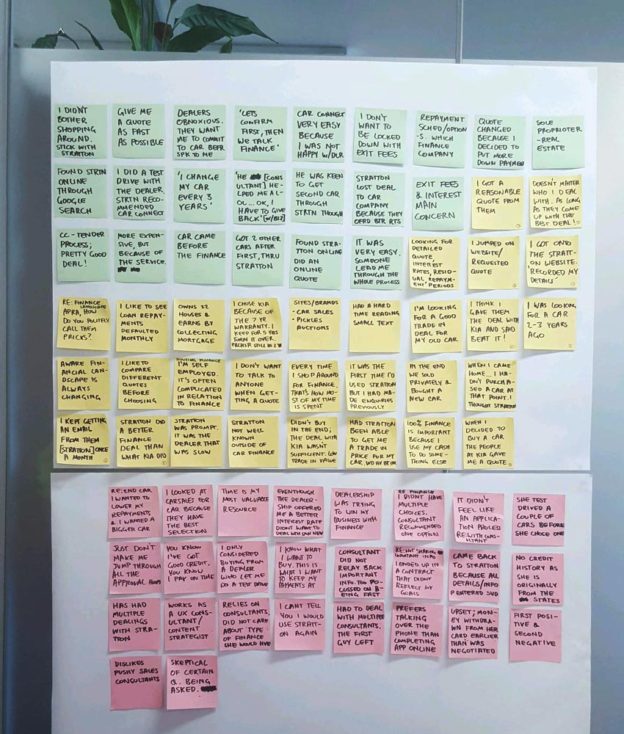 I DIDN'T
BOTHER
SHOPPING
AROUND.
STICK WITH
STRATTON
GIVE ME
A QUOTE
AS FAST
AS POSSIBLE
DEALERS
OBNOXIOUS.
THEY WANT
ME TO COMMIT
TO CAR BEFR
SPK TO ME
'LETS
CONFIRM
FIRST, THEN
WE TALK
FINANCE'
CAR CONNECT
VERY EASY
BECAUSE
I WAS NOT
HAPPY W/DLR
I DON'T
WANT TO
BE LOCKED
DOWN WITH
EXIT FEES
REPAYMENT
SCHED/OPTION
S WHICH
FINANCE
COMPANY
QUOTE
CHANGED
BECAUSE I
DECIDED TO
PUT MORE
DOWN PAYMENT
SOLE
PROPRIOTER
-REAL
ESTATE
FOUND STRTN
ONLINE
THROUGH
GOOGLE
SEARCH
I DID A TEST
DRIVE WITH
THE DEALER,
STRTN RECO-
MMENDED
CAR CONNECT
'I CHANGE
MY CAR
EVERY 3
YEARS'
'HE [CONS
ULTANT] HE-
LPED ME A L-
OT... OK, I
HAVE TO GIVE
BACK'
HE WAS KEEN
TO GET
SECOND CAR
THROUGH
STRTN THOUGH
STRATTON
LOST DEAL
TO CAR
COMPANY
BECAUSE THEY
OFRD BTR RTS
EXIT FEES
& INTEREST
MAIN
CONCERN
I GOT A
REASONABLE
QUOTE FROM
THEM
DOESN'T MATTER
WHO I DEAL
WITH, AS LONG
AS THEY COME
UP WITH THE
BEST DEAL!
CC-TENDER
PROCESS;
PRETTY GOOD
DEAL!
MORE EXPEN-
SIVE, BUT
BECAUSE OF
THE SERVICE.
CAR CAME
BEFORE
THE FINANCE
GOT 2 OTHER
CARS AFTER
FIRST, THRU
STRATTON
FOUND STRATTON
ONLINE
DID AN
ONLINE
QUOTE
IT WAS
VERY EASY.
SOMEONE
LEAD ME
THROUGH THE
WHOLE PROCESS
LOOKING FOR
DETAILED
QUOTE
INTEREST
RATES, RESID-
UAL REPAYM-
ENT PERIODS
I JUMPED ON
WEBSITE/
REQUESTED
QUOTE
I GOT ONTO
THE STRATT-
ON WEBSITE.
'RECORDED MY
DETAILS'
RE: FINANCE
APRA, HOW
DO YOU POLITELY
CALL THEM
PRICKS?
I LIKE TO SEE
LOAN REPAY-
MENTS
DEFAULTED
MONTHLY
OWNS 32
HOUSES &
EARNS BY
COLLECTING
MORTGAGE
I CHOSE KIA
BECAUSE OF
THE 7 YR
WARRANTY. I
KEEP FOR 5 YRS
SITES/BRANDS
-CAR SALES
-PICKLES
AUCTIONS
HAD A HARD
TIME READING
SMALL TEXT
I'M LOOKING
FOR A GOOD
TRADE IN
DEAL FOR
MY OLD CAR
I THINK I
GAVE THEM
THE DEAL WITH
KIA AND SAID
BEAT IT!
I WAS LOOKING
FOR A CAR
2-3 YEARS
AGO
AWARE FIN-
ANCIAL LAN-
DSCAPE IS
ALWAYS
CHANGING
I LIKE TO
COMPARE
DIFFERENT
QUOTES
BEFORE
CHOOSING
I'M SELF
EMPLOYED.
IT'S OFTEN
COMPLICATED
IN RELATION
TO FINANCE
I DON'T WANT
TO TALK TO
ANYONE
WHEN GET-
TING A QUOTE
EVERY TIME
I SHOP AROUND
FOR FINANCE.
THAT'S HOW M-
OST OF MY TIME
IS SPENT
IT WAS THE
FIRST TIME
I'D USED
STRATTON BUT
I HAD MA-
DE ENQUIRIES
PREVIOUSLY
IN THE END
WE SOLD
PRIVATELY &
BOUGHT A
NEW CAR
WHEN I CAME
HOME, I HA-
DN'T PURCHA-
SED A CAR AT
THAT POINT. I
THOUGHT STRATTON
I KEPT GETTING
AN EMAIL
FROM THEM
[STRATTON] ONCE
A MONTH
STRATTON DID
A BETTER
FINANCE
DEAL THAN
WHAT KIA DID
STRATTON WAS
PROMPT.
IT WAS THE
DEALER THAT
WAS SLOW
STRATTON
NOT WELL
KNOWN
OUTSIDE OF
CAR FINANCE
DIDN'T BUY
IN THE END,
THE DEAL WITH
KIA WASNT
SUFFICIENT. LOW
TRADE IN VALUE
HAD STRATTON
BEEN ABLE
TO GET ME
A TRADE IN
PRICE FOR MY
CAR.
100% FINANCE
IS IMPORTANT
BECAUSE I
USE MY CASH
TO DO SOME-
THING ELSE
WHEN I
DECIDED TO
BUY A CAR
THE PEOPLE
AT KIA GAVE
ME A QUOTE
RE: END CAR
I WANTED TO
LOWER MY
REPAYMENTS
& I WANTED A
BIGGER CAR
I LOOKED AT
CARSALES FOR
CAR BECAUSE
THEY HAVE
THE BEST
SELECTION
TIME IS MY
MOST VALUABLE
RESOURCE
EVENTHOUGH
THE DEALER-
SHIP OFFERED
ME A BETTER
INTEREST RATE
DIDN'T WANT TO
DEALERSHIP
WAS TRYING
TO WIN MY
BUSINESS WITH
FINANCE
RE FINANCE
I DIDN'T HAVE
MULTIPLE
CHOICES.
CONSULTANT
RECOMMENDED
ONE OPTION
IT DIDN'T
FEEL LIKE
AN APPLICA-
TION
SHE TEST
DROVE A
COUPLE OF
CARS BEFORE
SHE CHOSE ONE
JUST DON'T
MAKE ME
JUMP THROUGH
ALL THE
APPROVAL HOOPS
YOU KNOW
I'VE GOT
GOOD CREDIT,
YOU KNOW
I PAY ON TIME
I ONLY
CONSIDERED
BUYING FROM
A DEALER
WHO LET ME
DO A TEST DRIVE
I KNOW WHAT
I WANT TO
BUY. THIS IS
WHAT I WANT
TO KEEP MY
PAYMENTS AT
CONSULTANT
DID NOT
RELAY BACK
IMPORTANT
INFO. TOO FO-
CUSSED ON B-
EING FAST
I ENDED UP IN
A CONTRACT
THAT DIDN'T
REFLECT MY
GOALS
CAME BACK
TO STRATTON
BECAUSE ALL
DETAILS/INFO
ENTERED
NO CREDIT
HISTORY AS
SHE IS
ORIGINALLY
FROM THE
STATES
HAS HAD
MULTIPLE
DEALINGS
WITH STRA-
TTON
WORKS AS
A UX CONS-
ULTANT/
CONTENT
STRATEGIST
RELIES ON
CONSULTANTS,
DID NOT CARE
ABOUT TYPE OF
FINANCE
SHE WOULD HAVE
I CANT TELL
YOU I WOULD
USE STRATT-
ON AGAIN
HAD TO DEAL
WITH MULTIPLE
CONSULTANTS.
THE FIRST
GUY LEFT
PREFERS
TALKING
OVER THE
PHONE THAN
COMPLETING
APP ONLINE
UPSET; MON-
EY WITHDRA-
WN FROM HER
CARD EARLIER
THAN WAS
NEGOTIATED
FIRST POSI-
TIVE &
SECOND
NEGATIVE
DISLIKES
PUSHY SALES
CONSULTANTS
SKEPTICAL
OF CERTAIN
Q. BEING
ASKED.